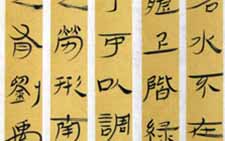 名水不在
上階綠
丁可以調
之勞形南
之有劉禹